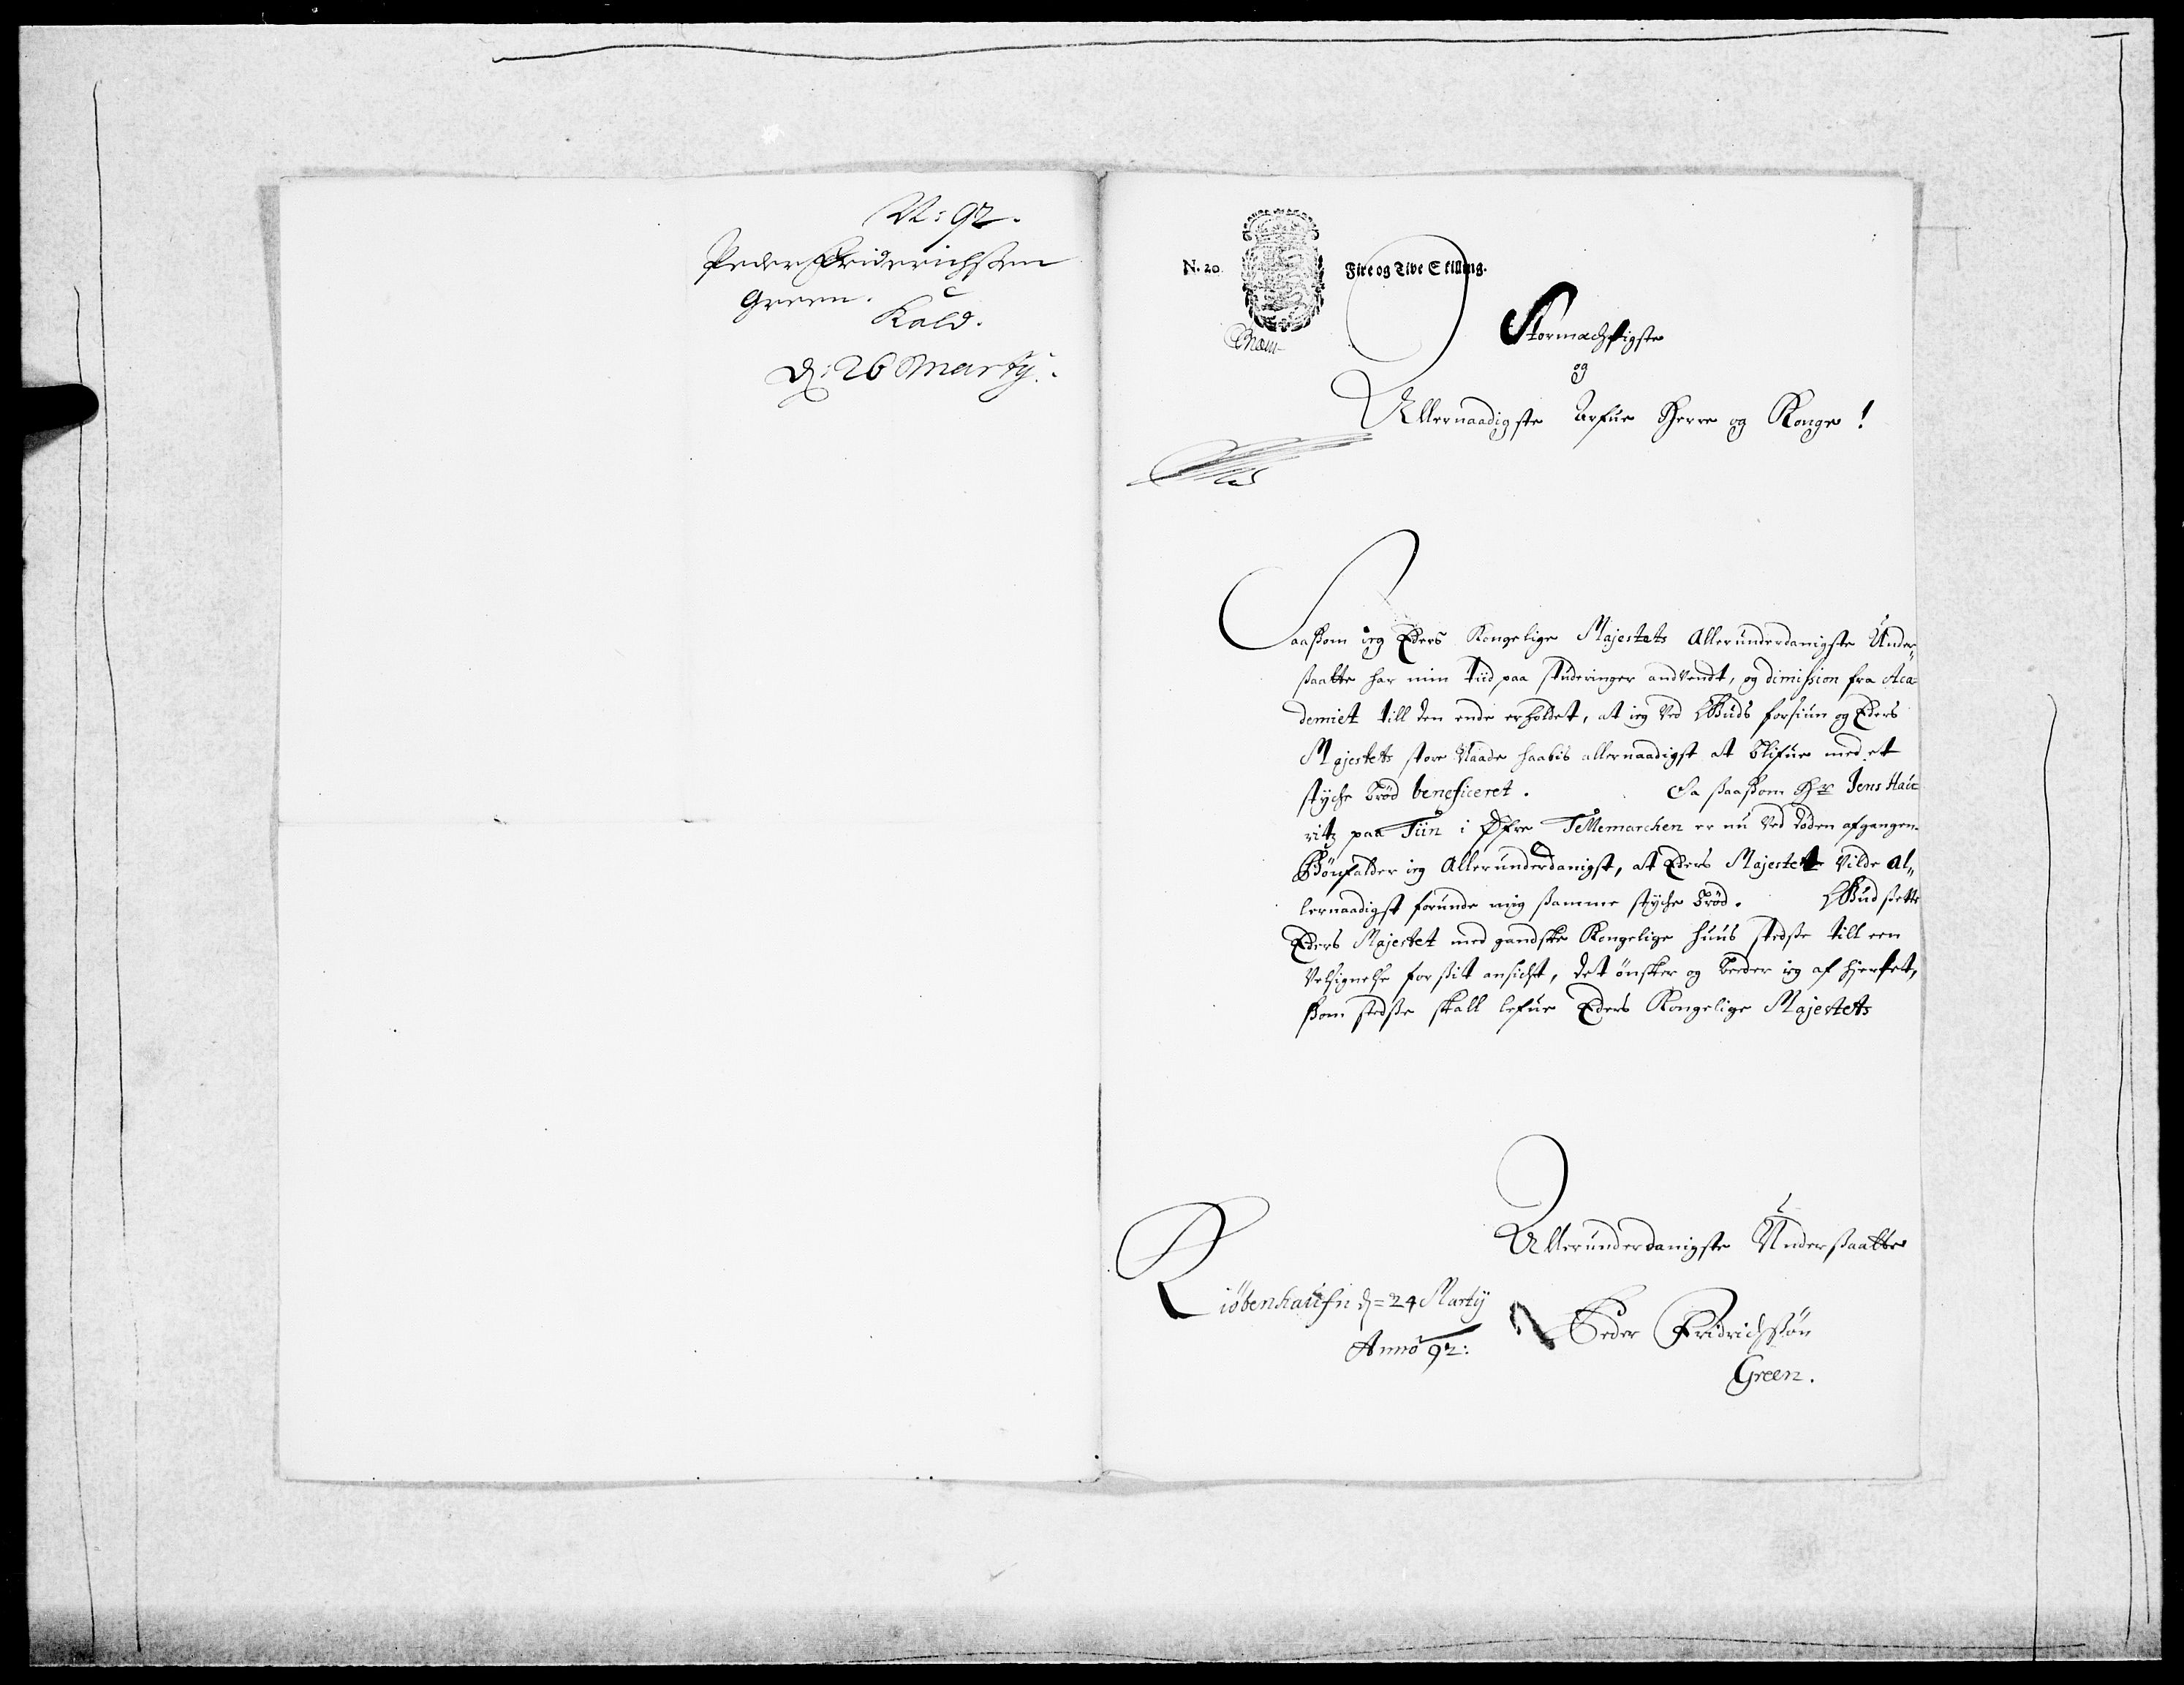 N: 92.
Peder Friderichsen
Green.
Kald.
d: 26 Martij.
N. 20.
Fire og Tive Skilling.
Stormachtigste
og
Allernaadigste Arfue Herre og Konge!
Saasom ieg Eders Kongelige Majestets Allerunderdanigste Under„
saatte har min tiid paa studeringer andvendt, og dimission fra Aca=
demiet till den ende erholdet, at ieg ved Guds forsiun og Eders
Majestets store Naade haabis allernaadigst at blifue med et
stycke brød beneficeret. Da saasom Hr Jens Hau=
ritz paa Tiin i Øfre Tellemarchen er nu ved døden afgangen.
Bønfalder ieg Allerunderdanigst, at Eders Majestet vilde al„
lernaadigst forunde mig samme stycke brød. Gud sette
Eders Majestet med gandske Kongelige huus stedse till een
Velsignelse for sit ansicht, det ønsker og beeder ieg af hjertet,
som stedse skall lefue Eders Kongelige Majestets
Allerunderdanigste Undersaatte
Kiøbenhaufn d= 24 Martij
Anno 92:
Peder Fridrichsøn
Green.